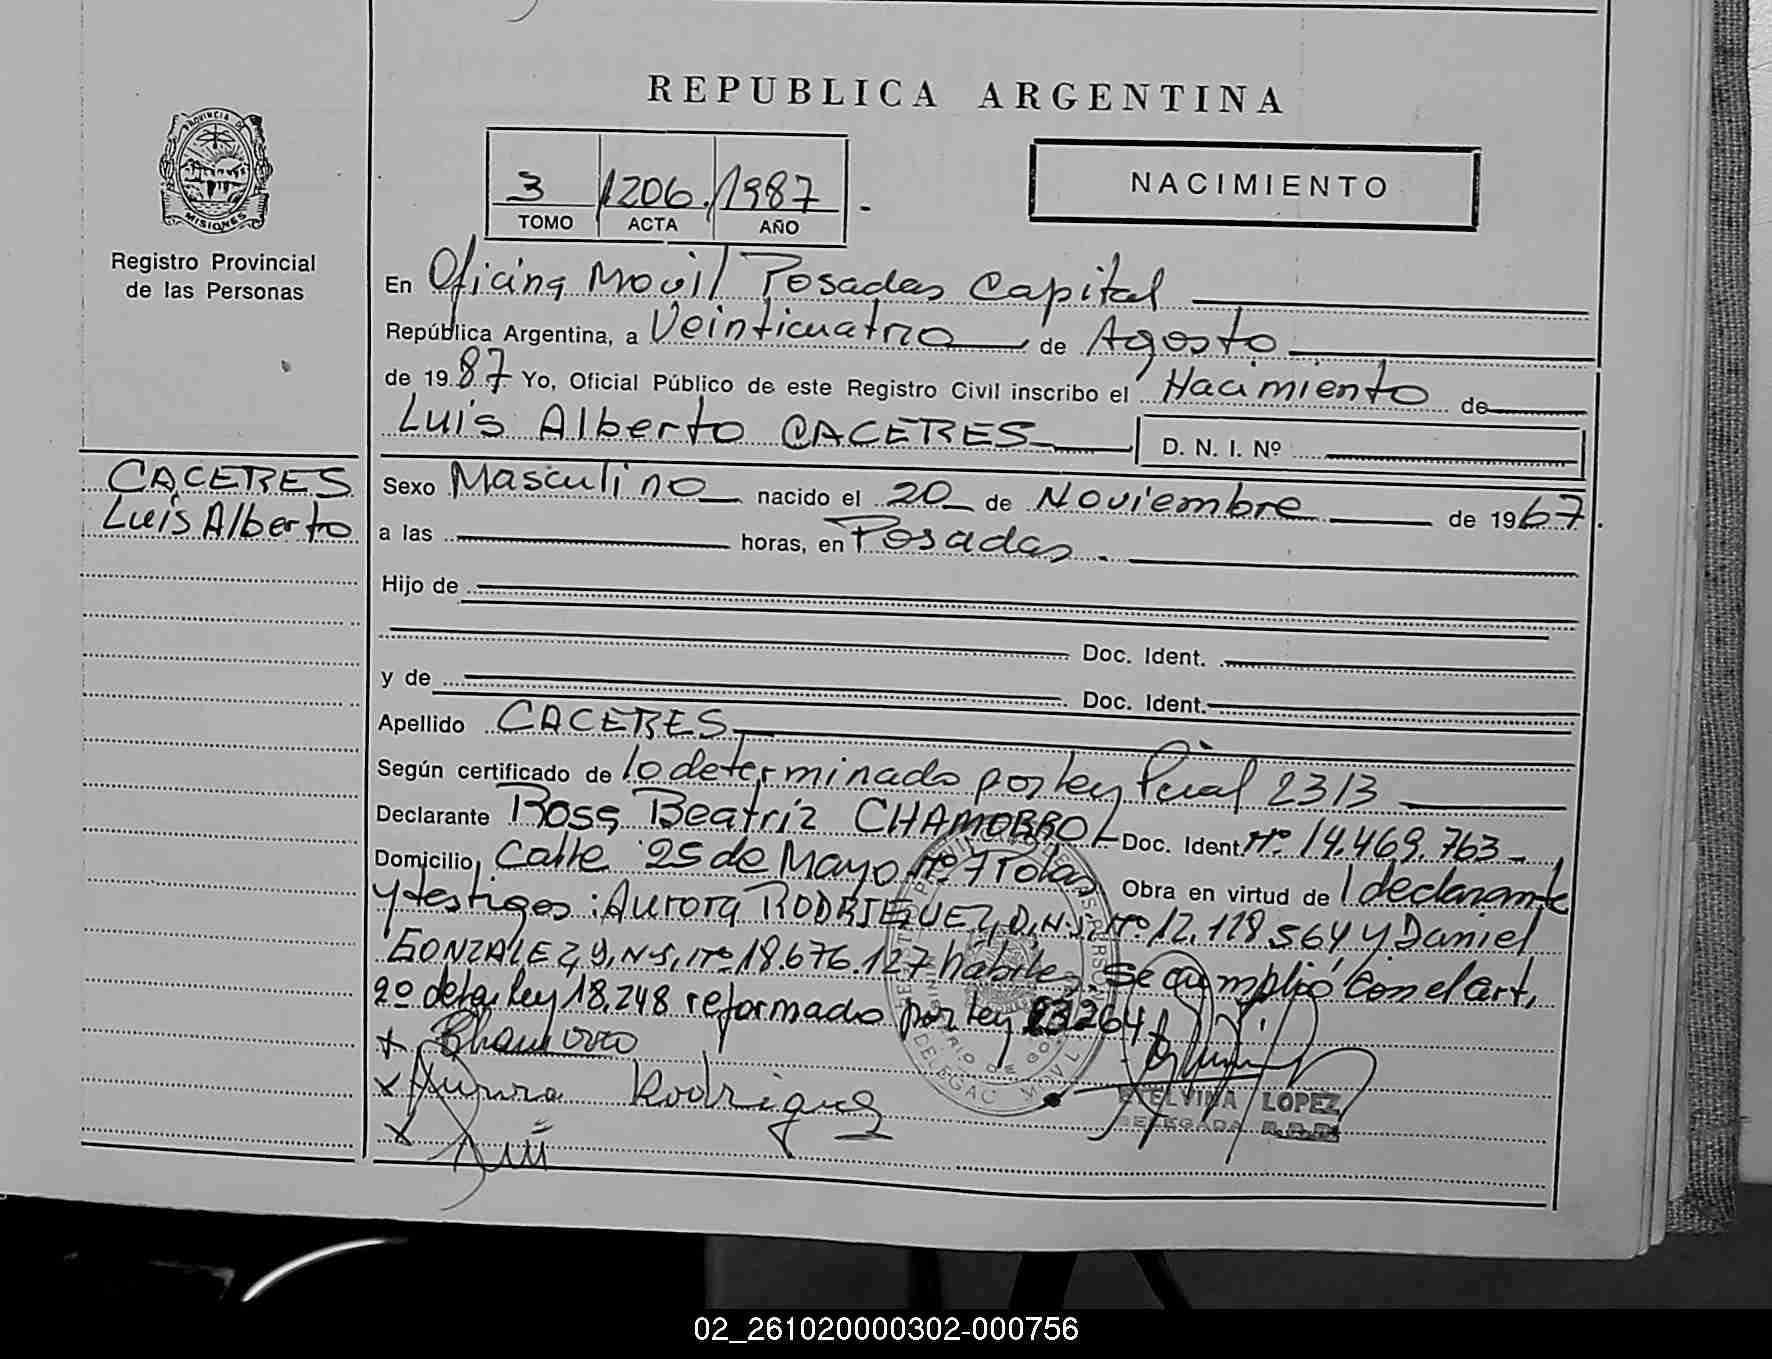 REPUBLICA ARGENTINA
PROVINCIA DE
MISIONES
Registro Provincial
de las Personas
3 1206. 1987
TOMO ACTA AÑO
NACIMIENTO
En Oficina Movil Posadas Capital
República Argentina, a Veinticuatro de Agosto
de 1987 Yo, Oficial Público de este Registro Civil inscribo el Nacimiento de
Luis Alberto CACERES
D. N. I. Nº
CACERES
Luis Alberto
Sexo Masculino nacido el 20 de Noviembre de 1967.
a las horas, en Posadas.
Hijo de
Doc. Ident.
y de Doc. Ident.
Apellido CACERES
Según certificado de lo determinado por ley 2313
Declarante Rosa Beatriz CHAMORRO Doc. Ident. Nº. 14.469.763
Domicilio, Calle 25 de Mayo Nº. Obra en virtud de declarante
y testigos: Aurora RODRIGUEZ, D.N.I. Nº 12.118.564 y Daniel
GONZALEZ, D.N.I. Nº 18.676.127 hábiles. Se cumplió con el art.
2º de la ley 18.248 reformado por ley 23264
x Chamorro
x Aurora Rodriguez
x
DELEGAC MOVIL
ETELVINA LOPEZ
DELEGADA
02_261020000302-000756